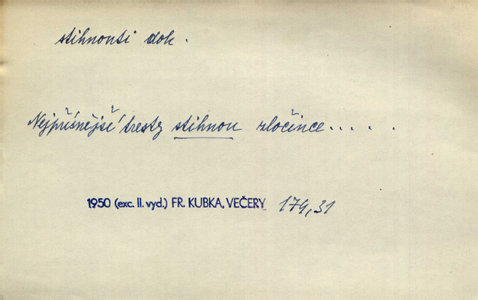 stihnouti dok.
Nejpřísnější tresty stihnou zločince.....
1950 (exc. II. vyd.) FR. KUBKA, VEČERY 174,31